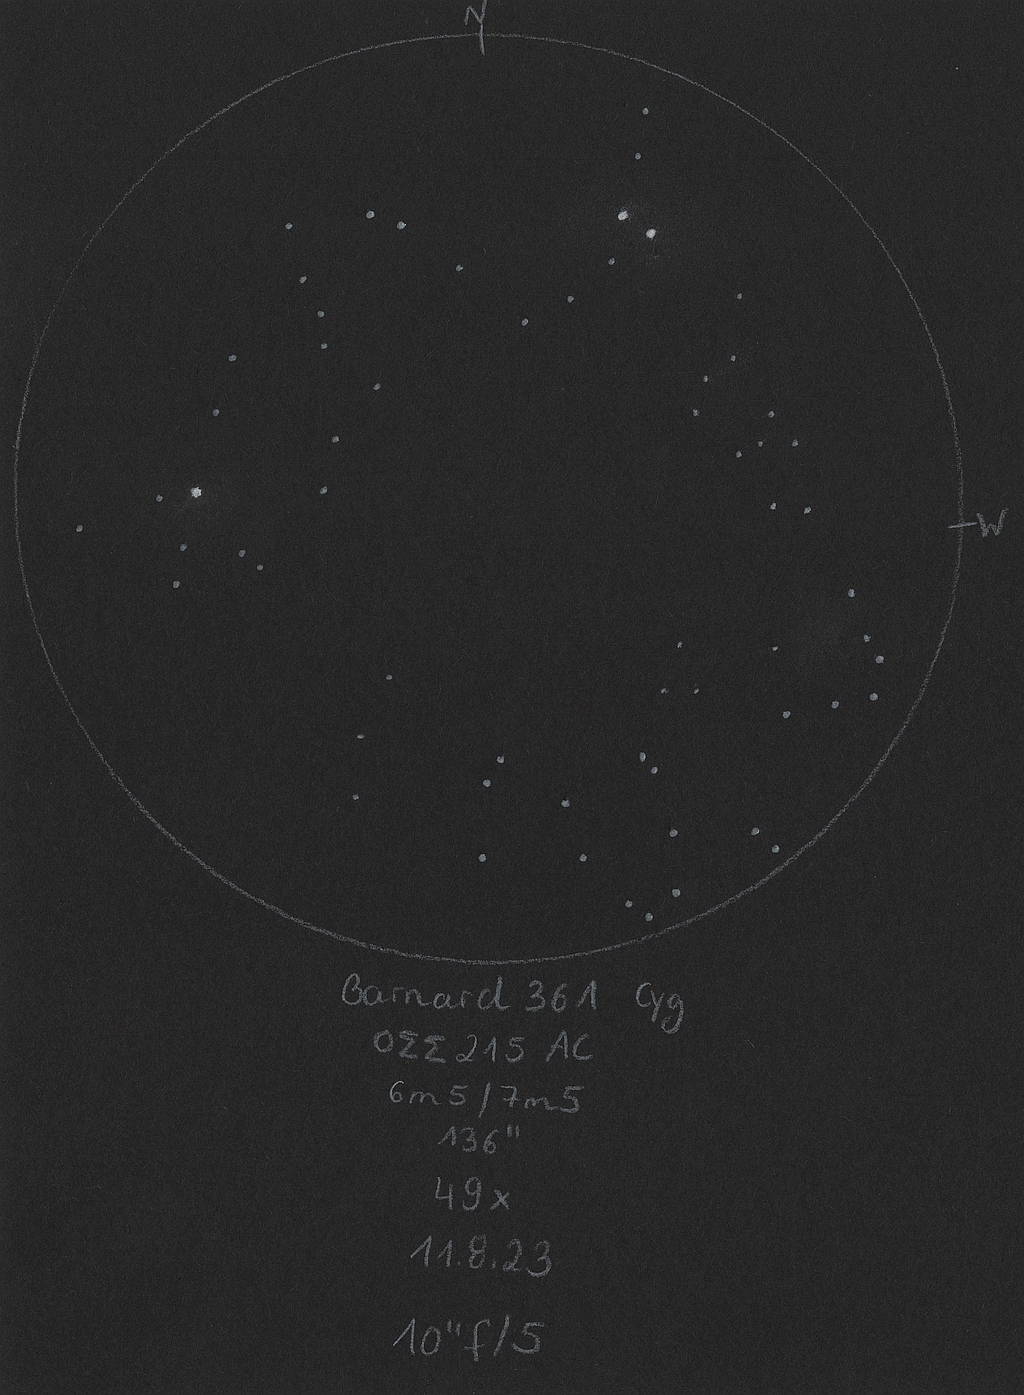 N
W
Barnard 361 Cyg
OΣΣ 215 AC
6m5/7m5
136"
49x
11.8.23
10" f/5